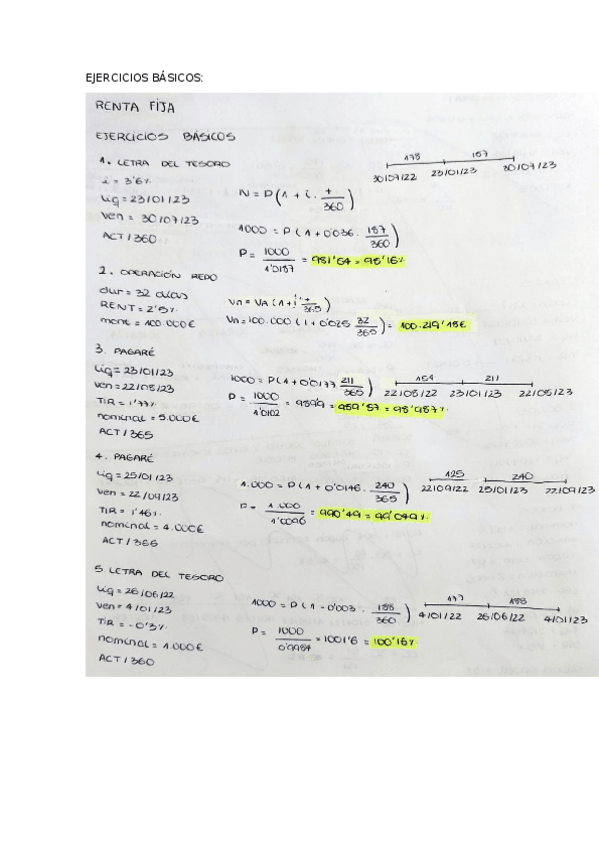 EJERCICIOS BÁSICOS:
RENTA FIJA
EJERCICIOS BÁSICOS
1. LETRA DEL TESORO
i = 3'6%
Liq = 23/01/23
Ven = 30/07/23
ACT/360
175 187
30/07/22 23/01/23 30/07/23
N = P(1 + i · t/360)
1000 = P(1 + 0'036 · 187/360)
P = 1000/1'0187 = 981'64 = 98'16%
2. OPERACIÓN REPO
dur = 32 días
RENT = 2'5%
mont = 100.000€
Vn = VA(1 + i t/365)
Vn = 100.000(1 + 0'025 32/365) = 100.219'18€
3. PAGARÉ
Liq = 23/01/23
Ven = 22/08/23
TIR = 1'77%
nominal = 5.000€
ACT/365
1000 = P(1 + 0'0177 211/365)
P = 1000/1'0102 = 989'87 = 98'987%
154 211
22/08/22 23/01/23 22/08/23
4. PAGARÉ
Liq = 25/01/23
Ven = 22/09/23
TIR = 1'46%
nominal = 4.000€
ACT/365
1.000 = P(1 + 0'0146 · 240/365)
P = 1.000/1'0096 = 990'49 = 99'049%
125 240
22/09/22 25/01/23 22/09/23
5 LETRA DEL TESORO
Liq = 26/06/22
Ven = 4/01/23
TIR = -0'3%
nominal = 1.000€
ACT/360
1000 = P(1 - 0'003 · 188/360)
P = 1000/0'9984 = 1001'6 = 100'16%
177 188
4/01/22 26/06/22 4/01/23